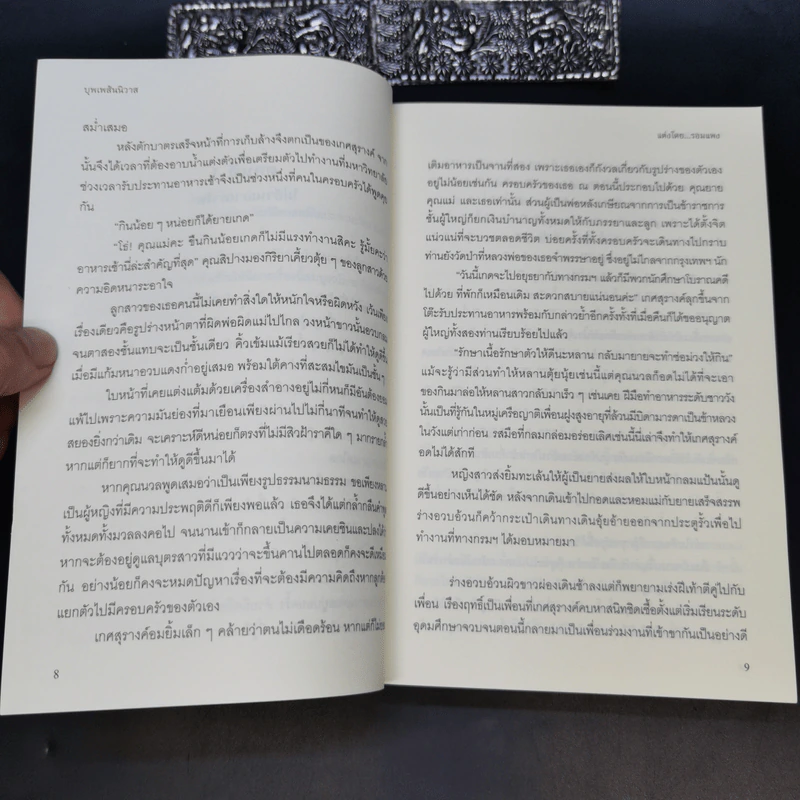 บุพเพสันนิวาส
สม่ำเสมอ
หลังตักบาตรเสร็จหน้าที่การเก็บล้างจึงตกเป็นของเกศสุรางค์ จาก
นั้นจึงได้เวลาที่ต้องอาบน้ำแต่งตัวเพื่อเตรียมตัวไปทำงานที่มหาวิทยาลัย
ช่วงเวลารับประทานอาหารเช้าจึงเป็นช่วงหนึ่งที่คนในครอบครัวได้พูดคุย
กัน
“กินน้อย ๆ หน่อยก็ได้ยายเกด”
“โธ่! คุณแม่คะ ขืนกินน้อยเกดก็ไม่มีแรงทำงานสิคะ รู้มั้ยคะว่า
อาหารเช้านี่ล่ะสำคัญที่สุด” คุณสิปางมองกิริยาเคี้ยวตุ้ย ๆ ของลูกสาวด้วย
ความอิดหนาระอาใจ
ลูกสาวของเธอคนนี้ไม่เคยทำสิ่งใดให้หนักใจหรือผิดหวัง เว้นเพียง
เรื่องเดียวคือรูปร่างหน้าตาที่ผิดพ่อผิดแม่ไปไกล วงหน้าขาวนั้นอวบกลม
จนตาสองชั้นแทบจะเป็นชั้นเดียว คิ้วเข้มแม้เรียวสวยก็ไม่ได้ทำให้ดูดีขึ้น
เมื่อมีแก้มหนาอวบแดงก่ำอยู่เสมอ พร้อมใต้คางที่สะสมไขมันเป็นชั้น ๆ
ใบหน้าที่เคยแต่งแต้มด้วยเครื่องสำอางอยู่ไม่กี่หนก็มีอันต้องยอม
แพ้ไปเพราะความมันย่องที่มาเยือนเพียงผ่านไปไม่กี่นาทีจนทำให้ดู
สยองยิ่งกว่าเดิม จะเคราะห์ดีหน่อยก็ตรงที่ไม่มีสิวฝ้าราคีใด ๆ มากรายกล้ำ
หากแต่ก็ยากที่จะทำให้ดูดีขึ้นมาได้
หากคุณนวลพูดเสมอว่าเป็นเพียงรูปธรรมนามธรรม ขอเพียง
เป็นผู้หญิงที่มีความประพฤติดีก็เพียงพอแล้ว เธอจึงได้แต่กล้ำกลืนคำพูด
ทั้งหมดทั้งมวลลงคอไป จนนานเข้าก็กลายเป็นความเคยชินและปลงได้ว่า
หากจะต้องอยู่ดูแลบุตรสาวที่มีแววว่าจะขึ้นคานไปตลอดก็คงจะดีเหมือน
กัน อย่างน้อยก็คงจะหมดปัญหาเรื่องที่จะต้องมีความคิดถึงหากลูกต้อง
แยกตัวไปมีครอบครัวของตัวเอง
เกศสุรางค์อมยิ้มเล็ก ๆ คล้ายว่าตนไม่เดือดร้อน หากแต่ก็ไม่
8
แต่งโดย...รอมแพง
เติมอาหารเป็นจานที่สอง เพราะเธอเองก็กังวลเกี่ยวกับรูปร่างของตัวเอง
อยู่ไม่น้อยเช่นกัน ครอบครัวของเธอ ณ ตอนนี้ประกอบไปด้วย คุณยาย
คุณแม่ และเธอเท่านั้น ส่วนผู้เป็นพ่อหลังเกษียณจากการเป็นข้าราชการ
ชั้นผู้ใหญ่ก็ยกเงินบำนาญทั้งหมดให้กับภรรยาและลูก เพราะได้ตั้งจิต
แน่วแน่ที่จะบวชตลอดชีวิต บ่อยครั้งที่ทั้งครอบครัวจะเดินทางไปกราบ
ท่านยังวัดป่าที่หลวงพ่อของเธอจำพรรษาอยู่ ซึ่งอยู่ไม่ไกลจากกรุงเทพฯ นัก
“วันนี้เกดจะไปอยุธยากับทางกรมฯ แล้วก็มีพวกนักศึกษาโบราณคดี
ไปด้วย ที่พักก็เหมือนเดิม สะดวกสบายแน่นอนค่ะ” เกศสุรางค์ลุกขึ้นจาก
โต๊ะรับประทานอาหารพร้อมกับกล่าวย้ำอีกครั้งทั้งที่เมื่อคืนก็ได้ขออนุญาต
ผู้ใหญ่ทั้งสองท่านเรียบร้อยไปแล้ว
“รักษาเนื้อรักษาตัวให้ดีนะหลาน กลับมายายจะทำช่อม่วงให้กิน”
แม้จะรู้ว่ามีส่วนทำให้หลานตุ้ยนุ้ยเช่นนี้แต่คุณนวลก็อดไม่ได้ที่จะเอา
ของกินมาล่อให้หลานสาวกลับมาเร็ว ๆ เช่นเคย ฝีมือทำอาหารระดับชาววัง
นั้นเป็นที่รู้กันในหมู่เครือญาติเพื่อนฝูงสูงอายุที่ล้วนมีบิดามารดาเป็นข้าหลวง
ในวังแต่เก่าก่อน รสมือที่กลมกล่อมอร่อยเลิศเช่นนี้เล่าจึงทำให้เกศสุรางค์
อดไม่ได้สักที
หญิงสาวส่งยิ้มทะเล้นให้ผู้เป็นยายส่งผลให้ใบหน้ากลมแป้นนั้นดู
ดีขึ้นอย่างเห็นได้ชัด หลังจากเดินเข้าไปกอดและหอมแม่กับยายเสร็จสรรพ
ร่างอวบอ้วนก็คว้ากระเป๋าเดินทางเดินอุ้ยอ้ายออกจากประตูรั้วเพื่อไป
ทำงานที่ทางกรมฯ ได้มอบหมายมา
ร่างอวบอ้วนผิวขาวผ่องเดินช้าลงแต่ก็พยายามเร่งฝีเท้าตีคู่ไปกับ
เพื่อน เรืองฤทธิ์เป็นเพื่อนที่เกศสุรางค์คบหาสนิทชิดเชื้อตั้งแต่เริ่มเรียนระดับ
อุดมศึกษาจวบจนตอนนี้กลายมาเป็นเพื่อนร่วมงานที่เข้าขากันเป็นอย่างดี
9